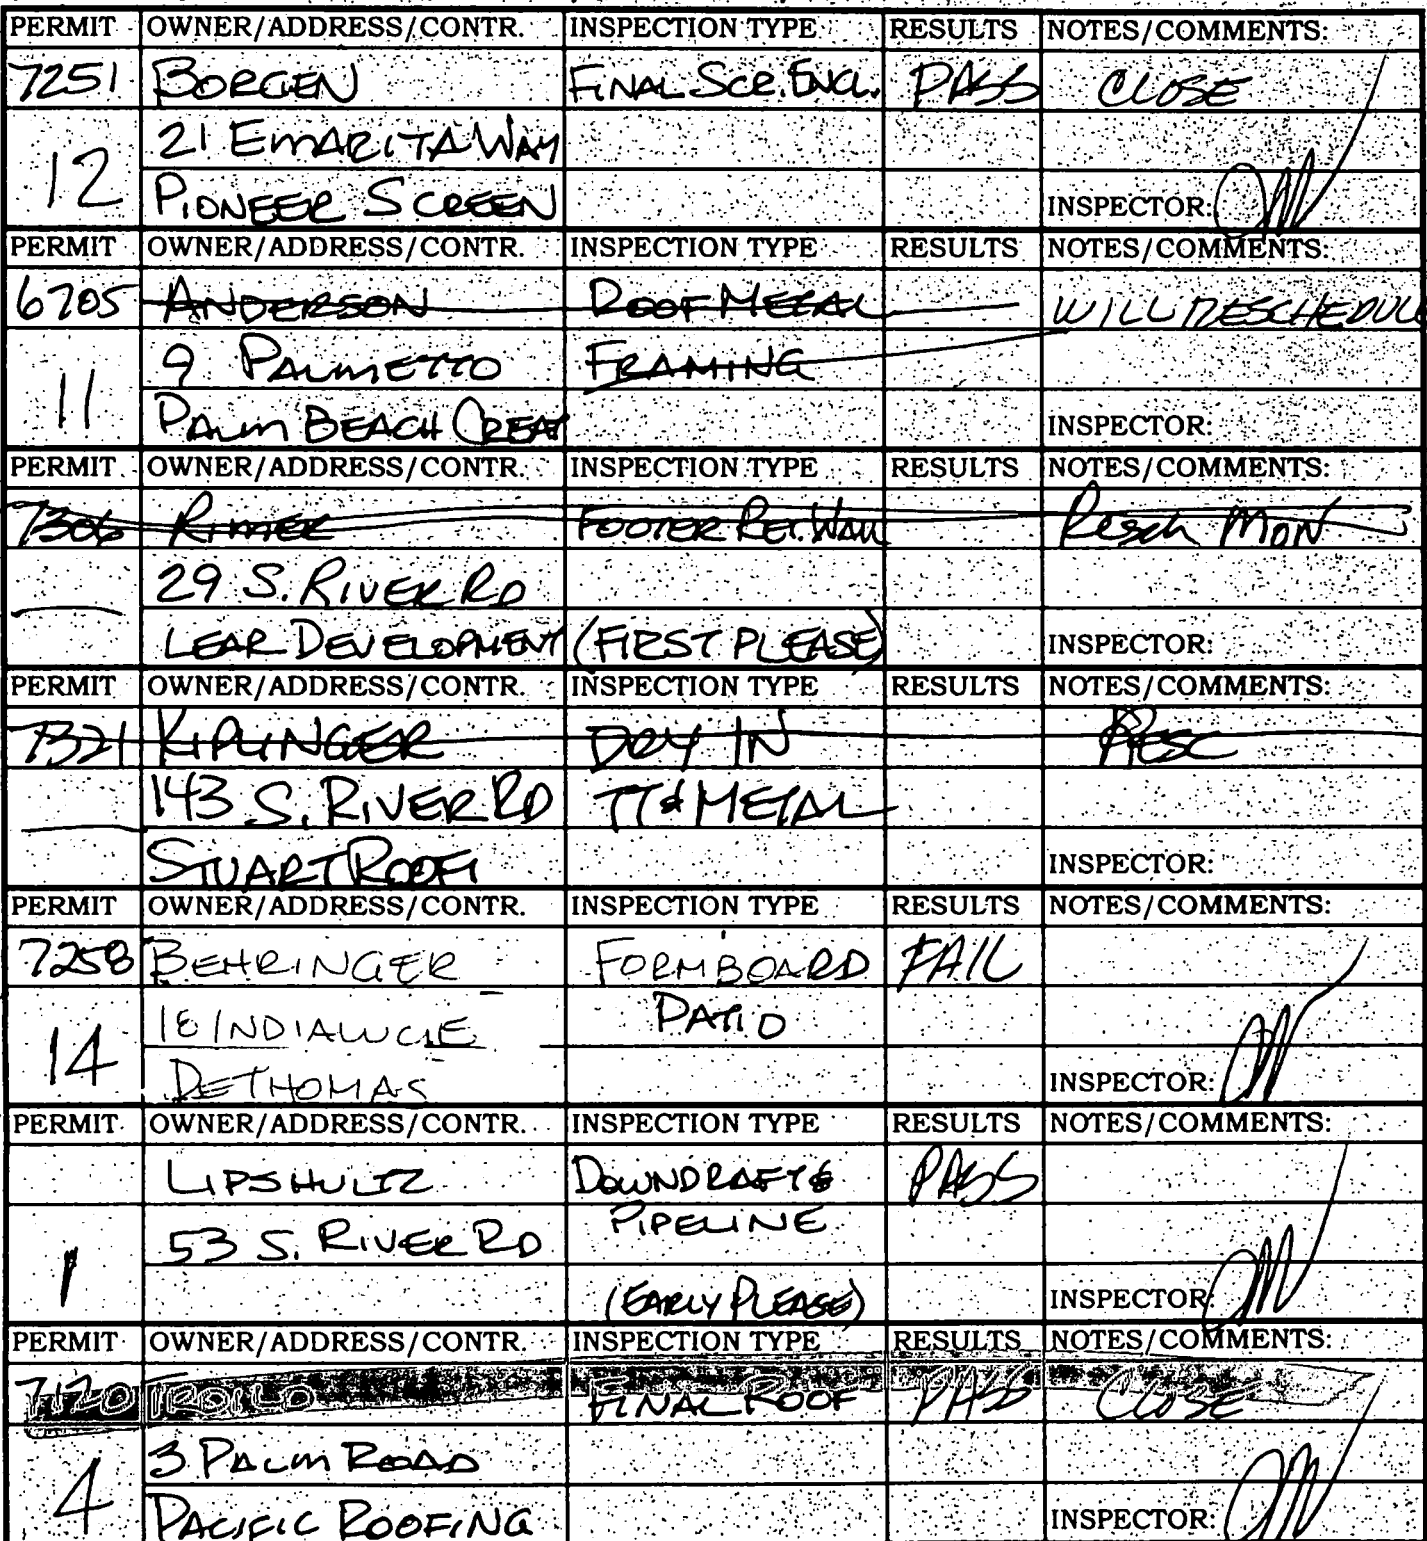 PERMIT OWNER/ADDRESS/CONTR. INSPECTION TYPE RESULTS NOTES/COMMENTS:
7251 BORGEN FINAL SCR. ENCL. PASS CLOSE
12 21 EMARITA WAY
PIONEER SCREEN INSPECTOR:
PERMIT OWNER/ADDRESS/CONTR. INSPECTION TYPE RESULTS NOTES/COMMENTS:
6705 ANDERSON ROOF METAL WILL RESCHEDUL
11 9 PALMETTO FRAMING
PALM BEACH CREAT INSPECTOR:
PERMIT OWNER/ADDRESS/CONTR. INSPECTION TYPE RESULTS NOTES/COMMENTS:
7306 RIMER FOOTER RET. WALL Resch MON
29 S. RIVER RD
LEAR DEVELOPMENT (FIRST PLEASE) INSPECTOR:
PERMIT OWNER/ADDRESS/CONTR. INSPECTION TYPE RESULTS NOTES/COMMENTS:
7321 KIPLINGER DRY IN RESC
143 S. RIVER RD TT & METAL
STUART ROOFI INSPECTOR:
PERMIT OWNER/ADDRESS/CONTR. INSPECTION TYPE RESULTS NOTES/COMMENTS:
7258 BEHRINGER FORMBOARD FAIL
14 18 INDIALUCIE PATIO
DETHOMAS INSPECTOR:
PERMIT OWNER/ADDRESS/CONTR. INSPECTION TYPE RESULTS NOTES/COMMENTS:
LIPSHULTZ DOWNDRAFT & PASS
1 53 S. RIVER RD PIPELINE
(EARLY PLEASE) INSPECTOR:
PERMIT OWNER/ADDRESS/CONTR. INSPECTION TYPE RESULTS NOTES/COMMENTS:
7120 TROILO FINAL ROOF PASS CLOSE
4 3 PALM ROAD
PACIFIC ROOFING INSPECTOR: